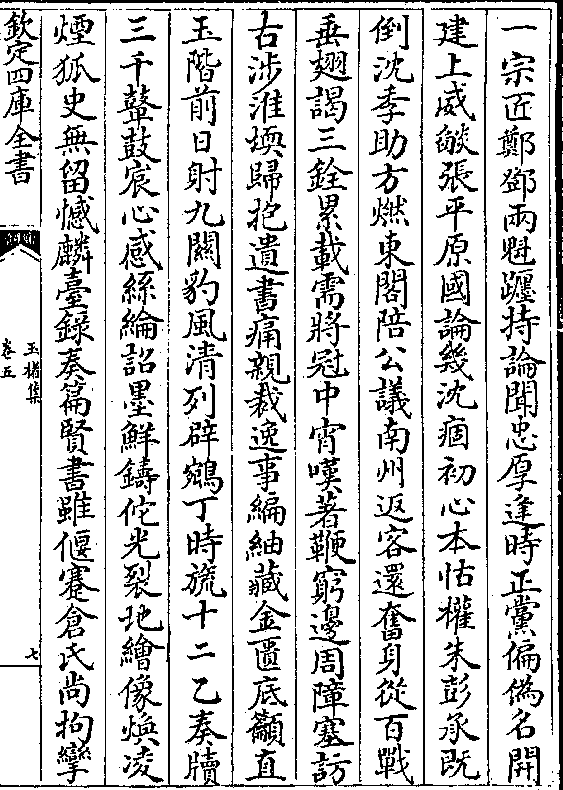 一宗匠鄭鄧兩魁躔持論聞忠厚逢時正黨偏偽名開
建上威燄張平原國論幾沈痼初心本怙權朱彭承既
倒沈季助方燃東閣陪公議南州返客還奮身從百戰
垂翅謁三銓累載需將冠中宵嘆著鞭窮邊周障塞訪
古涉淮堧歸抱遺書痛親裁逸事編紬藏金匱底籲直
玉階前日射九關豹風清列辟鵷丁時旒十二乙奏牘
三千鼛鼓宸心感絲綸詔墨鮮鑄佗光裂地繪像煥凌
煙狐史無留憾麟臺錄奏篇賢書雖偃蹇倉氏尚拘攣
欽定四庫全書
玉楮集
卷五
七